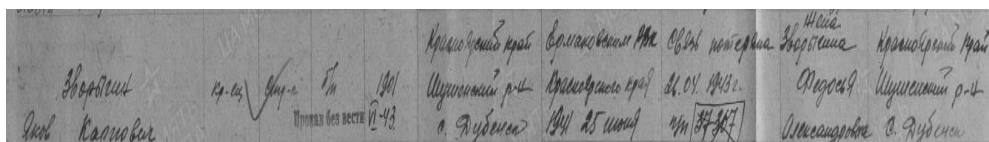 Зворыгин Яков Карпович
кр-ец
стр-к
б/п
Пропал без вести VI-43
1901
Красноярский край
Шушенский р-н
с. Дубенск
Ермаковским РВК
Красноярского края
1941 25 июня
Связь потеряна
21.04.1943 г.
п/п 37367
Жена
Зворыгина
Федосья
Александровна
Красноярский край
Шушенский р-н
с. Дубенск